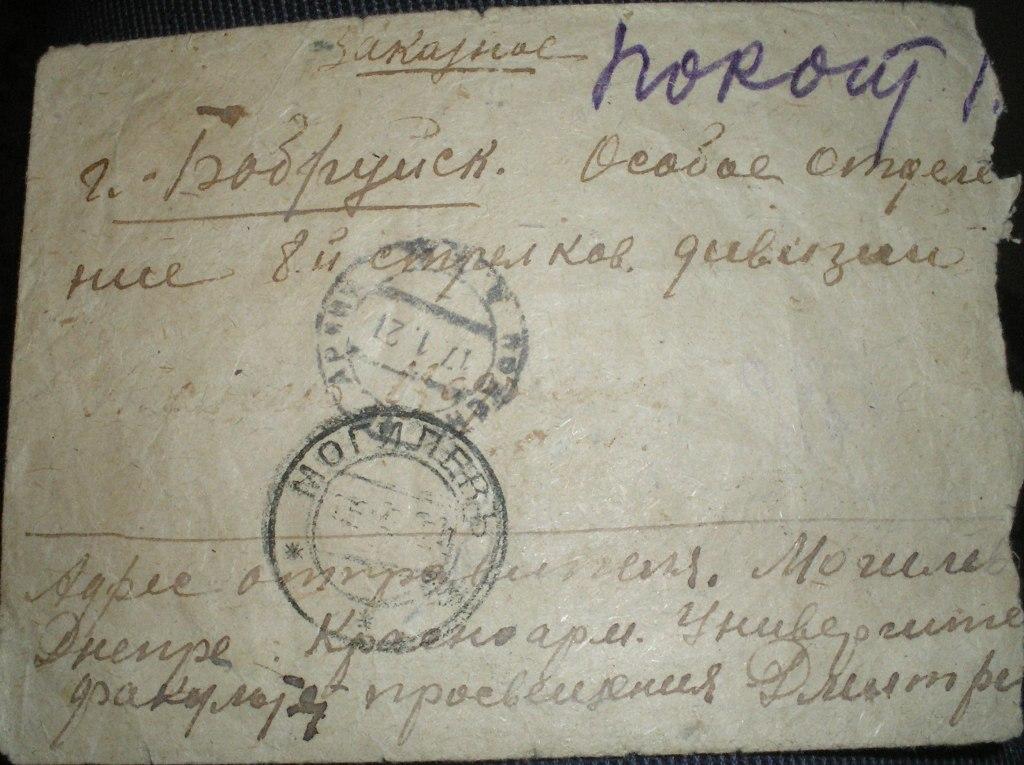 Заказное
Покот
г. Бобруйск. Особое отделе
ние 8.й стрелков. дивизии
17.1.21
МОГИЛЕВЪ
Адрес отправителя. Могилев
Днепре. Красноарм. Университе
факультет просвещения Дмитри